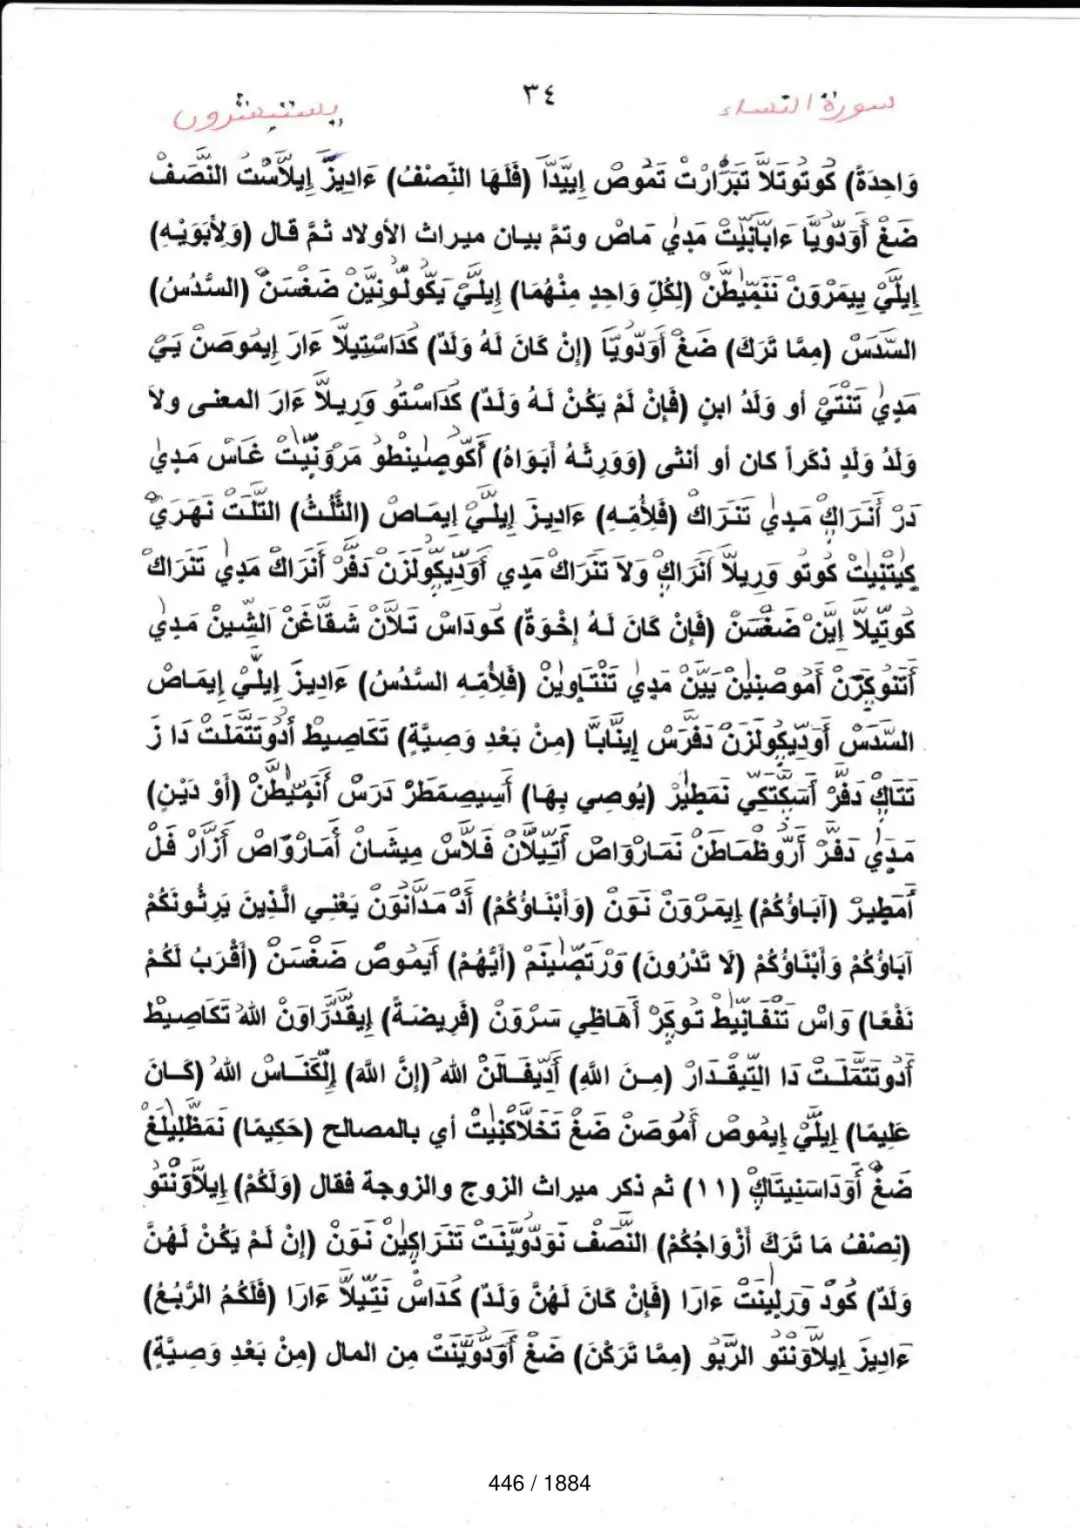 سورة النساء ٣٤ يستبشرون
وَاحِدَةً) كُوتُوتَلاَّ تَبَرَّارْتْ تَمُوصْ إِييَّدَّا (فَلَهَا النِّصْفُ) ءَادِيزْ إِيلاَّسْتُ النَّصَفْ
ضَغْ أَوَدُّويَّا ءَابَّانَيِّتْ مَدِيْ مَاصْ وتمَّ بيان ميراث الأولاد ثمَّ قال (وَلِأَبَوَيْهِ)
إِيلَيْ يِيمَرْوَنْ نَنَمِّيطَّنْ (لِكُلِّ وَاحِدٍ مِنْهُمَا) إِيلَيْ يَكُولُونِيَّنْ ضَغْسَنْ (السُّدُسُ)
السَّدَسْ (مِمَّا تَرَكَ) ضَغْ أَوَدُّويَّا (إِنْ كَانَ لَهُ وَلَدٌ) كَدَاسْتِيلاَّ ءَارَ إِيمُوصَنْ يَيْ
مَدِيْ تَنْتَيْ أو وَلَدُ ابنٍ (فَإِنْ لَمْ يَكُنْ لَهُ وَلَدٌ) كَدَاسْتُو وَرِيلاَّ ءَارَ المعنى ولا
وَلَدُ وَلَدٍ ذكراً كان أو أنثى (وَوَرِثَهُ أَبَوَاهُ) أَكُّوصِينْطُو مَرْوَنِّيتْ غَاسْ مَدِيْ
دَرْ أَنَرَاكْ مَدِيْ تَنَرَاكْ (فَلِأُمِّهِ) ءَادِيزَ إِيلَيْ إِيمَاصْ (الثُّلُثُ) التَّلَتْ نَهَرَيْ
كِيتْنِيتْ كُوتُو وَرِيلاَّ أَنَرَاكْ وَلَا تَنَرَاكْ مَدِي أَوَدِّيكُّولَزَنْ دَفَّرْ أَنَرَاكْ مَدِيْ تَنَرَاكْ
كُوتِّيلاَّ إِيَّنْ ضَغْسَنْ (فَإِنْ كَانَ لَهُ إِخْوَةٌ) كُودَاسْ تَلاَّنْ شَقَّاغَنْ الشِّينْ مَدِيْ
أَتَنُوكِزَنْ أَمُوصْنِينْ يَيَّنْ مَدِيْ تَنْتَاوِينْ (فَلِأُمِّهِ السُّدُسُ) ءَادِيزَ إِيلَيْ إِيمَاصْ
السَّدَسْ أَوَدِّيكُولَزَنْ دَفَّرَسْ إِينَابَّا (مِنْ بَعْدِ وَصِيَّةٍ) تَكَاصِيطْ أَدُوتَتَّمَلَتْ دَا زَ
تَتَاكْ دَفَّرْ أَسَكَّتَكِّي نَمَطِيرْ (يُوصِي بِهَا) أَسِيصِمَطَرْ دَرَسْ أَنَمِّيطَّنْ (أَوْ دَيْنٍ)
مَدِيْ دَفَّرْ أَرُّوظَمَاطَنْ نَمَارْوَاصْ أَتِيلاَّنْ فَلاَّسْ مِيشَانْ أَمَارْوَاصْ أَزَّارْ فَلْ
أَمَطِيرْ (آبَاؤُكُمْ) إِيمَرْوَنْ نَوَنْ (وَأَبْنَاؤُكُمْ) أَدْ مَدَّانَوَنْ يَعْنِي الَّذِينَ يَرِثُونَكُمْ
آبَاؤُكُمْ وَأَبْنَاؤُكُمْ (لَا تَدْرُونَ) وَرْتَصِّينَمْ (أَيُّهُمْ) أَيَمُوصْ ضَغْسَنْ (أَقْرَبُ لَكُمْ
نَفْعًا) وَاسْ تَنْفَانِيطْ تُوكَزْ أَهَاظِي سَرْوَنْ (فَرِيضَةً) إِيقَدَّرَاوَنْ اللهُ تَكَاصِيطْ
أَدُوتَتَّمَلَتْ دَا التِّيقْدَارْ (مِنَ اللَّهِ) أَدِّيفَالَنْ الله (إِنَّ اللَّهَ) إِلْكَنَاسْ اللهُ (كَانَ
عَلِيمًا) إِيلَيْ إِيمُوصْ أَمُوصَنْ ضَغْ تَخَلاَّكْنِيتْ أي بالمصالح (حَكِيمًا) نَمَظْلِيلَغْ
ضَغْ أَوَدَاسَنِيتَاكْ (١١) ثم ذكر ميراث الزوج والزوجة فقال (وَلَكُمْ) إِيلاَّوَنْتُو
(نِصْفُ مَا تَرَكَ أَزْوَاجُكُمْ) النَّصَفْ نَوَدُّويَّنَتْ تَنَرَاكِينْ نَوَنْ (إِنْ لَمْ يَكُنْ لَهُنَّ
وَلَدٌ) كُودْ وَرِلِينَتْ ءَارَا (فَإِنْ كَانَ لَهُنَّ وَلَدٌ) كُدَاسْ نَتِّيلاَّ ءَارَا (فَلَكُمُ الرُّبُعُ)
ءَادِيزَ إِيلاَّوَنْتُو الرَّبُو (مِمَّا تَرَكْنَ) ضَغْ أَوَدُّويَّنَتْ مِن المال (مِنْ بَعْدِ وَصِيَّةٍ)
446 / 1884